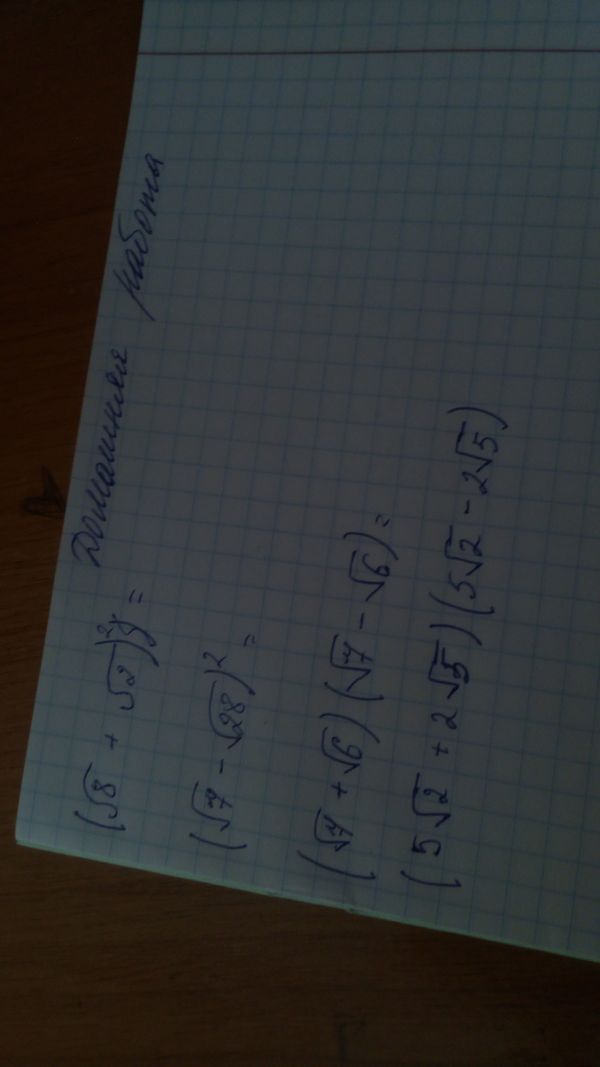 Домашняя работа
(√8 + √2)² =
(√7 - √28)² =
(√7 + √6)(√7 - √6) =
(5√2 + 2√5)(5√2 - 2√5)